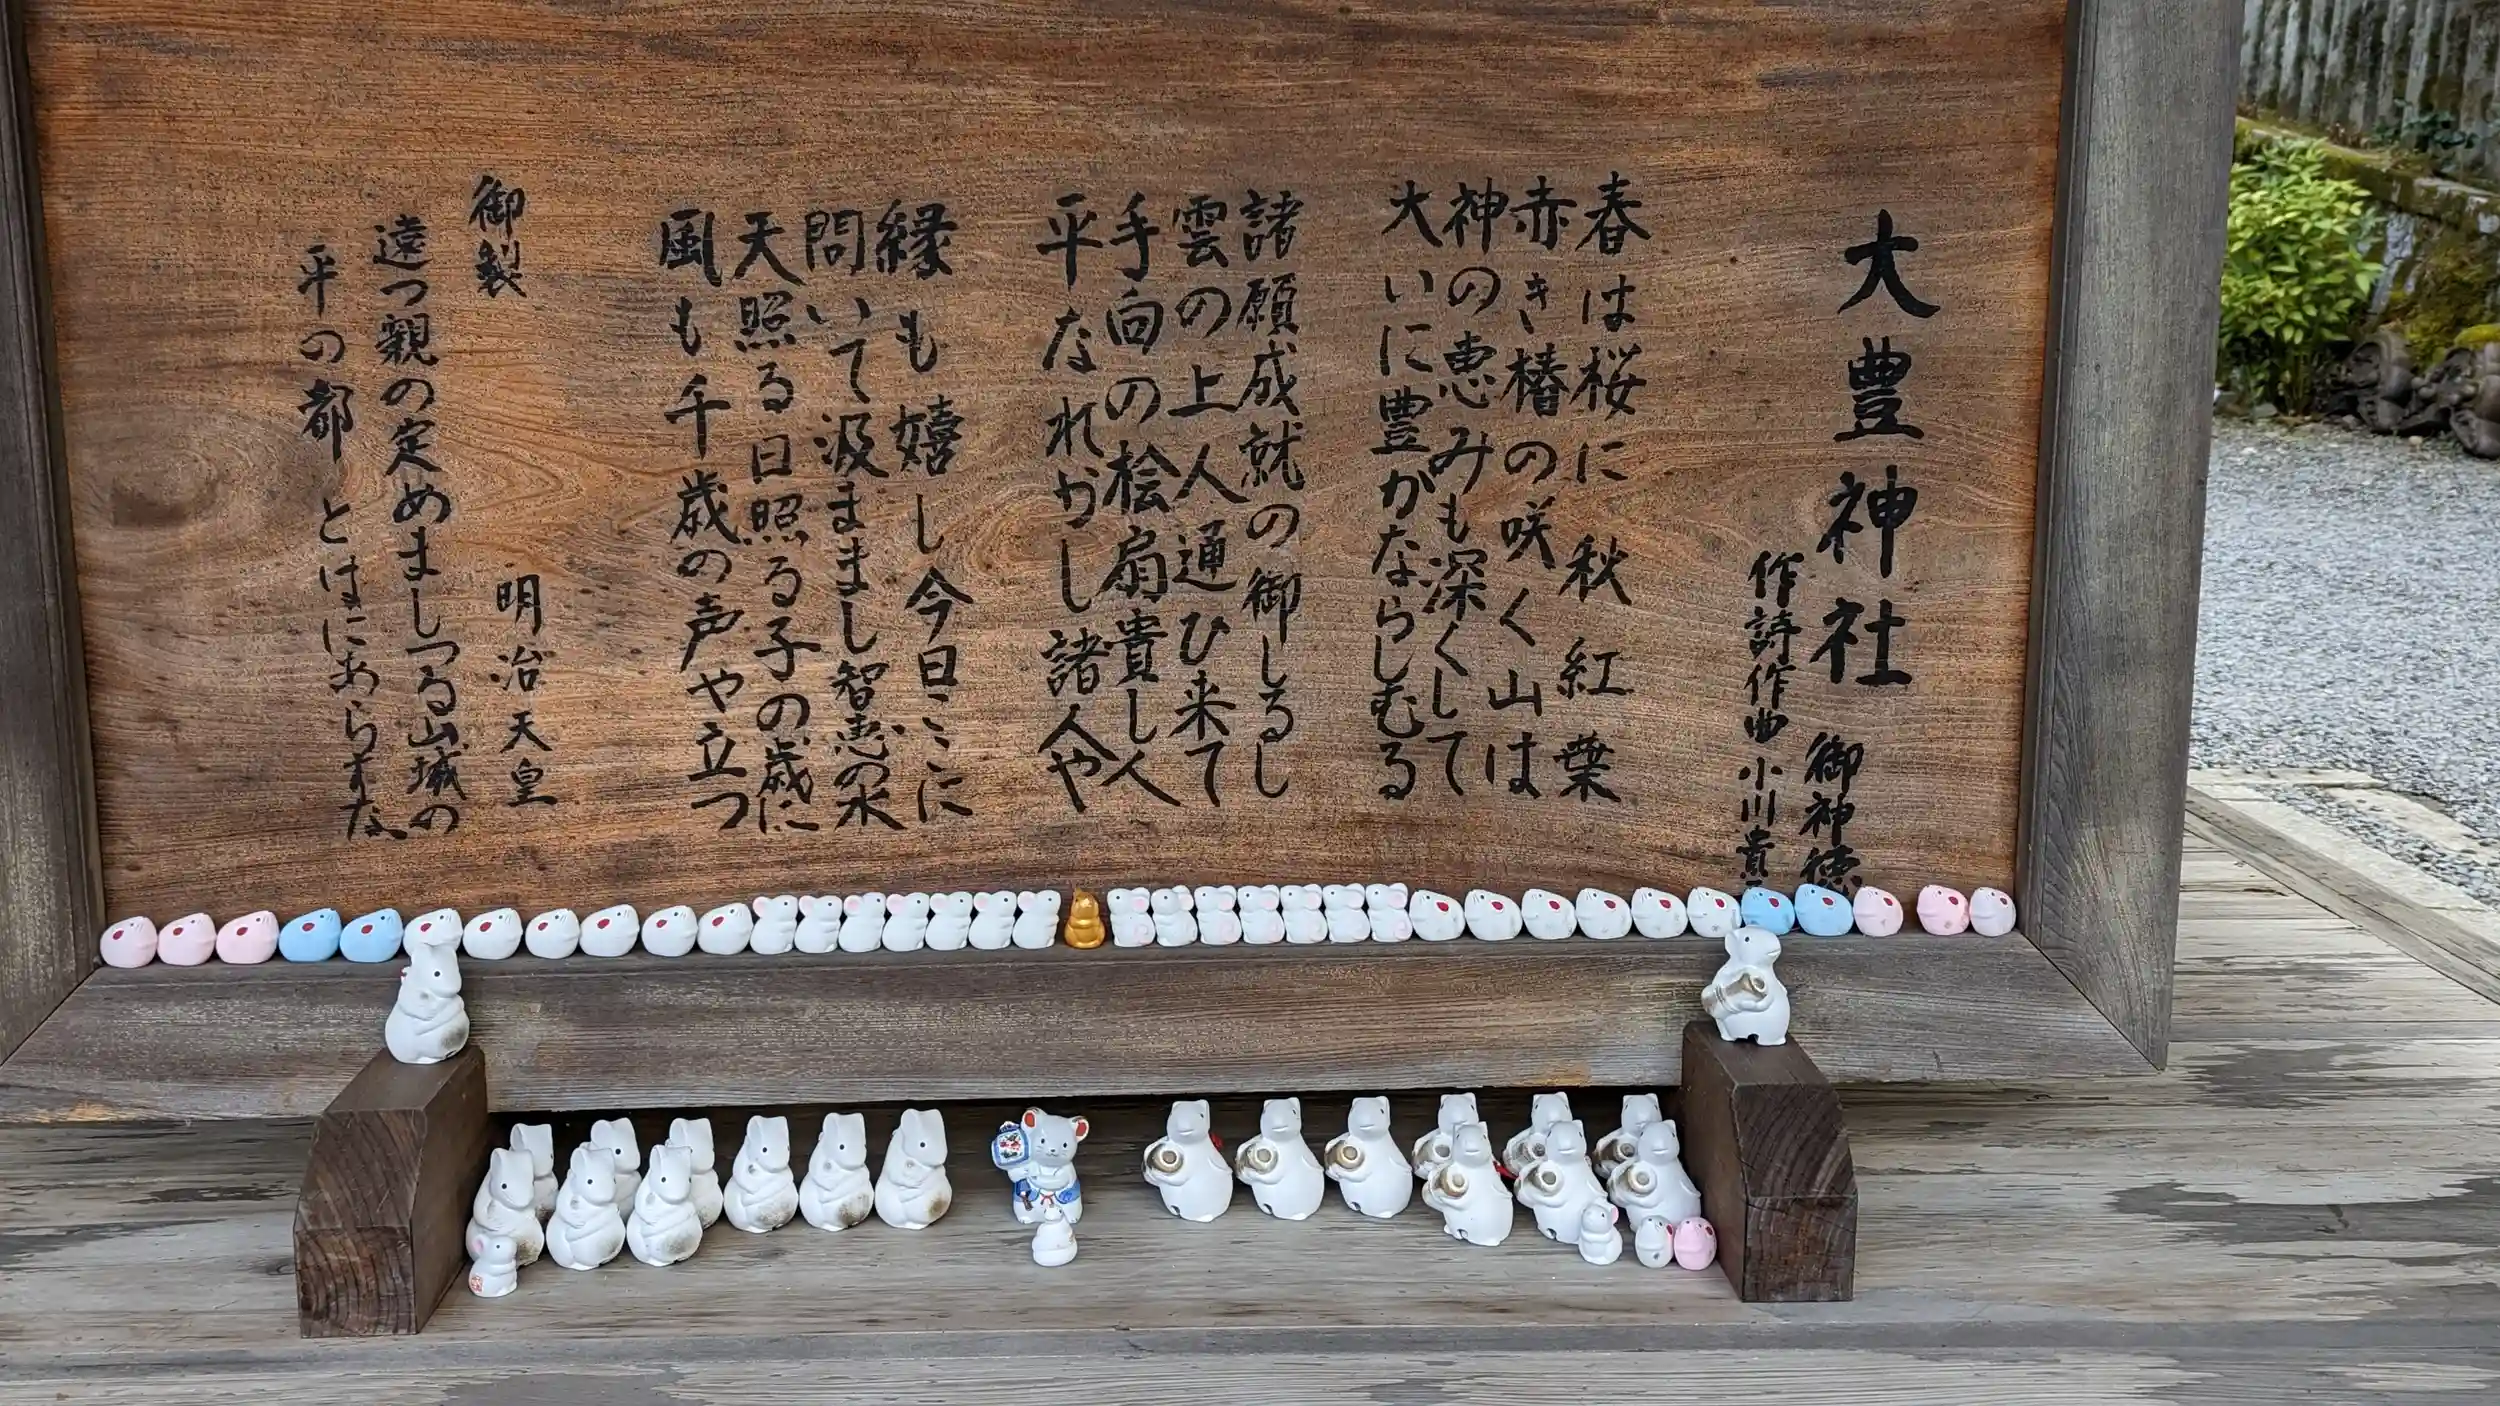 大豊神社 御神徳
作詩作曲 小川貴
春は桜に 秋紅葉
赤き椿の咲く山は
神の恵みも深くして
大いに豊かならしむる
諸願成就の御しるし
雲の上人通ひ来て
手向の桧扇貴し人
平なれかし諸人や
縁も嬉し今日ここに
問いて汲ままし智恵の水
天照る日照る子の歳に
風も千歳の声や立つ
御製 明治天皇
遠つ親の定めましつる山城の
平の都とはにあらすな